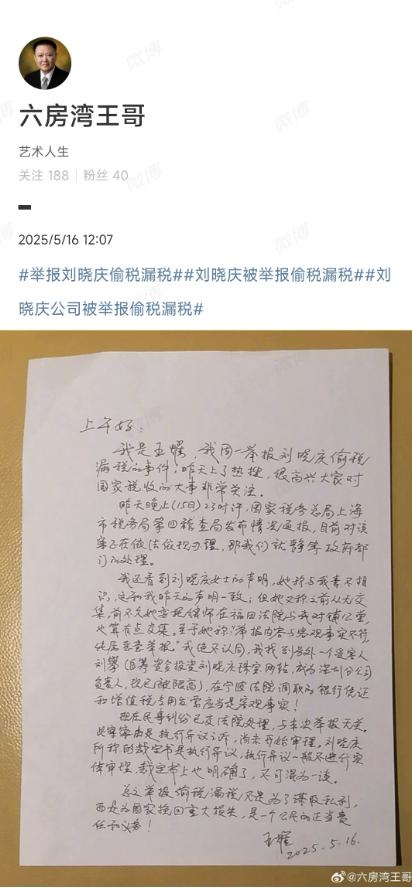 六房湾王哥
艺术人生
关注 188 粉丝 40
2025/5/16 12:07
#举报刘晓庆偷税漏税##刘晓庆被举报偷税漏税##刘
晓庆公司被举报偷税漏税#
上午好：
我是王耀，我周一举报刘晓庆偷税
漏税的事件，昨天上了热搜，很高兴大家对
国家税收的大事非常关注。
昨天晚上（15日）23时许，国家税务总局上海
市税务局第四稽查局发布情况通报，目前对该
案正在依法依规办理，那我们就静等政府部
门的处理。
我还看到刘晓庆女士的声明，她称与我素不相
识，这和我昨天的声明一致；但她又称之前从无交
集，前不久她委托律师在福田法院与我对簿公堂，
也算有点交集。至于她称“举报内容与客观事实不符
纯属恶意举报”我绝不认同，我找到另外一个受害人
刘擎（自筹资金投资刘晓庆珠宝网站，成为深圳分公司
负责人，现已被限高），在宁波法院调取的银行凭证
和增值税专用发票应当是客观事实！
现在民事纠纷已交法院处理，与本次举报无关。
此案案由是执行异议之诉，尚未开始审理。刘晓庆
所称的裁定书是执行异议，执行异议一般不进行实
体审理，裁定书上也明确了，不可混为一谈。
这次举报偷税漏税不是为了谋取私利，
而是为国家挽回重大损失，是一个公民的正当责
任和义务！
王耀
2025.5.16.
@六房湾王哥
微博